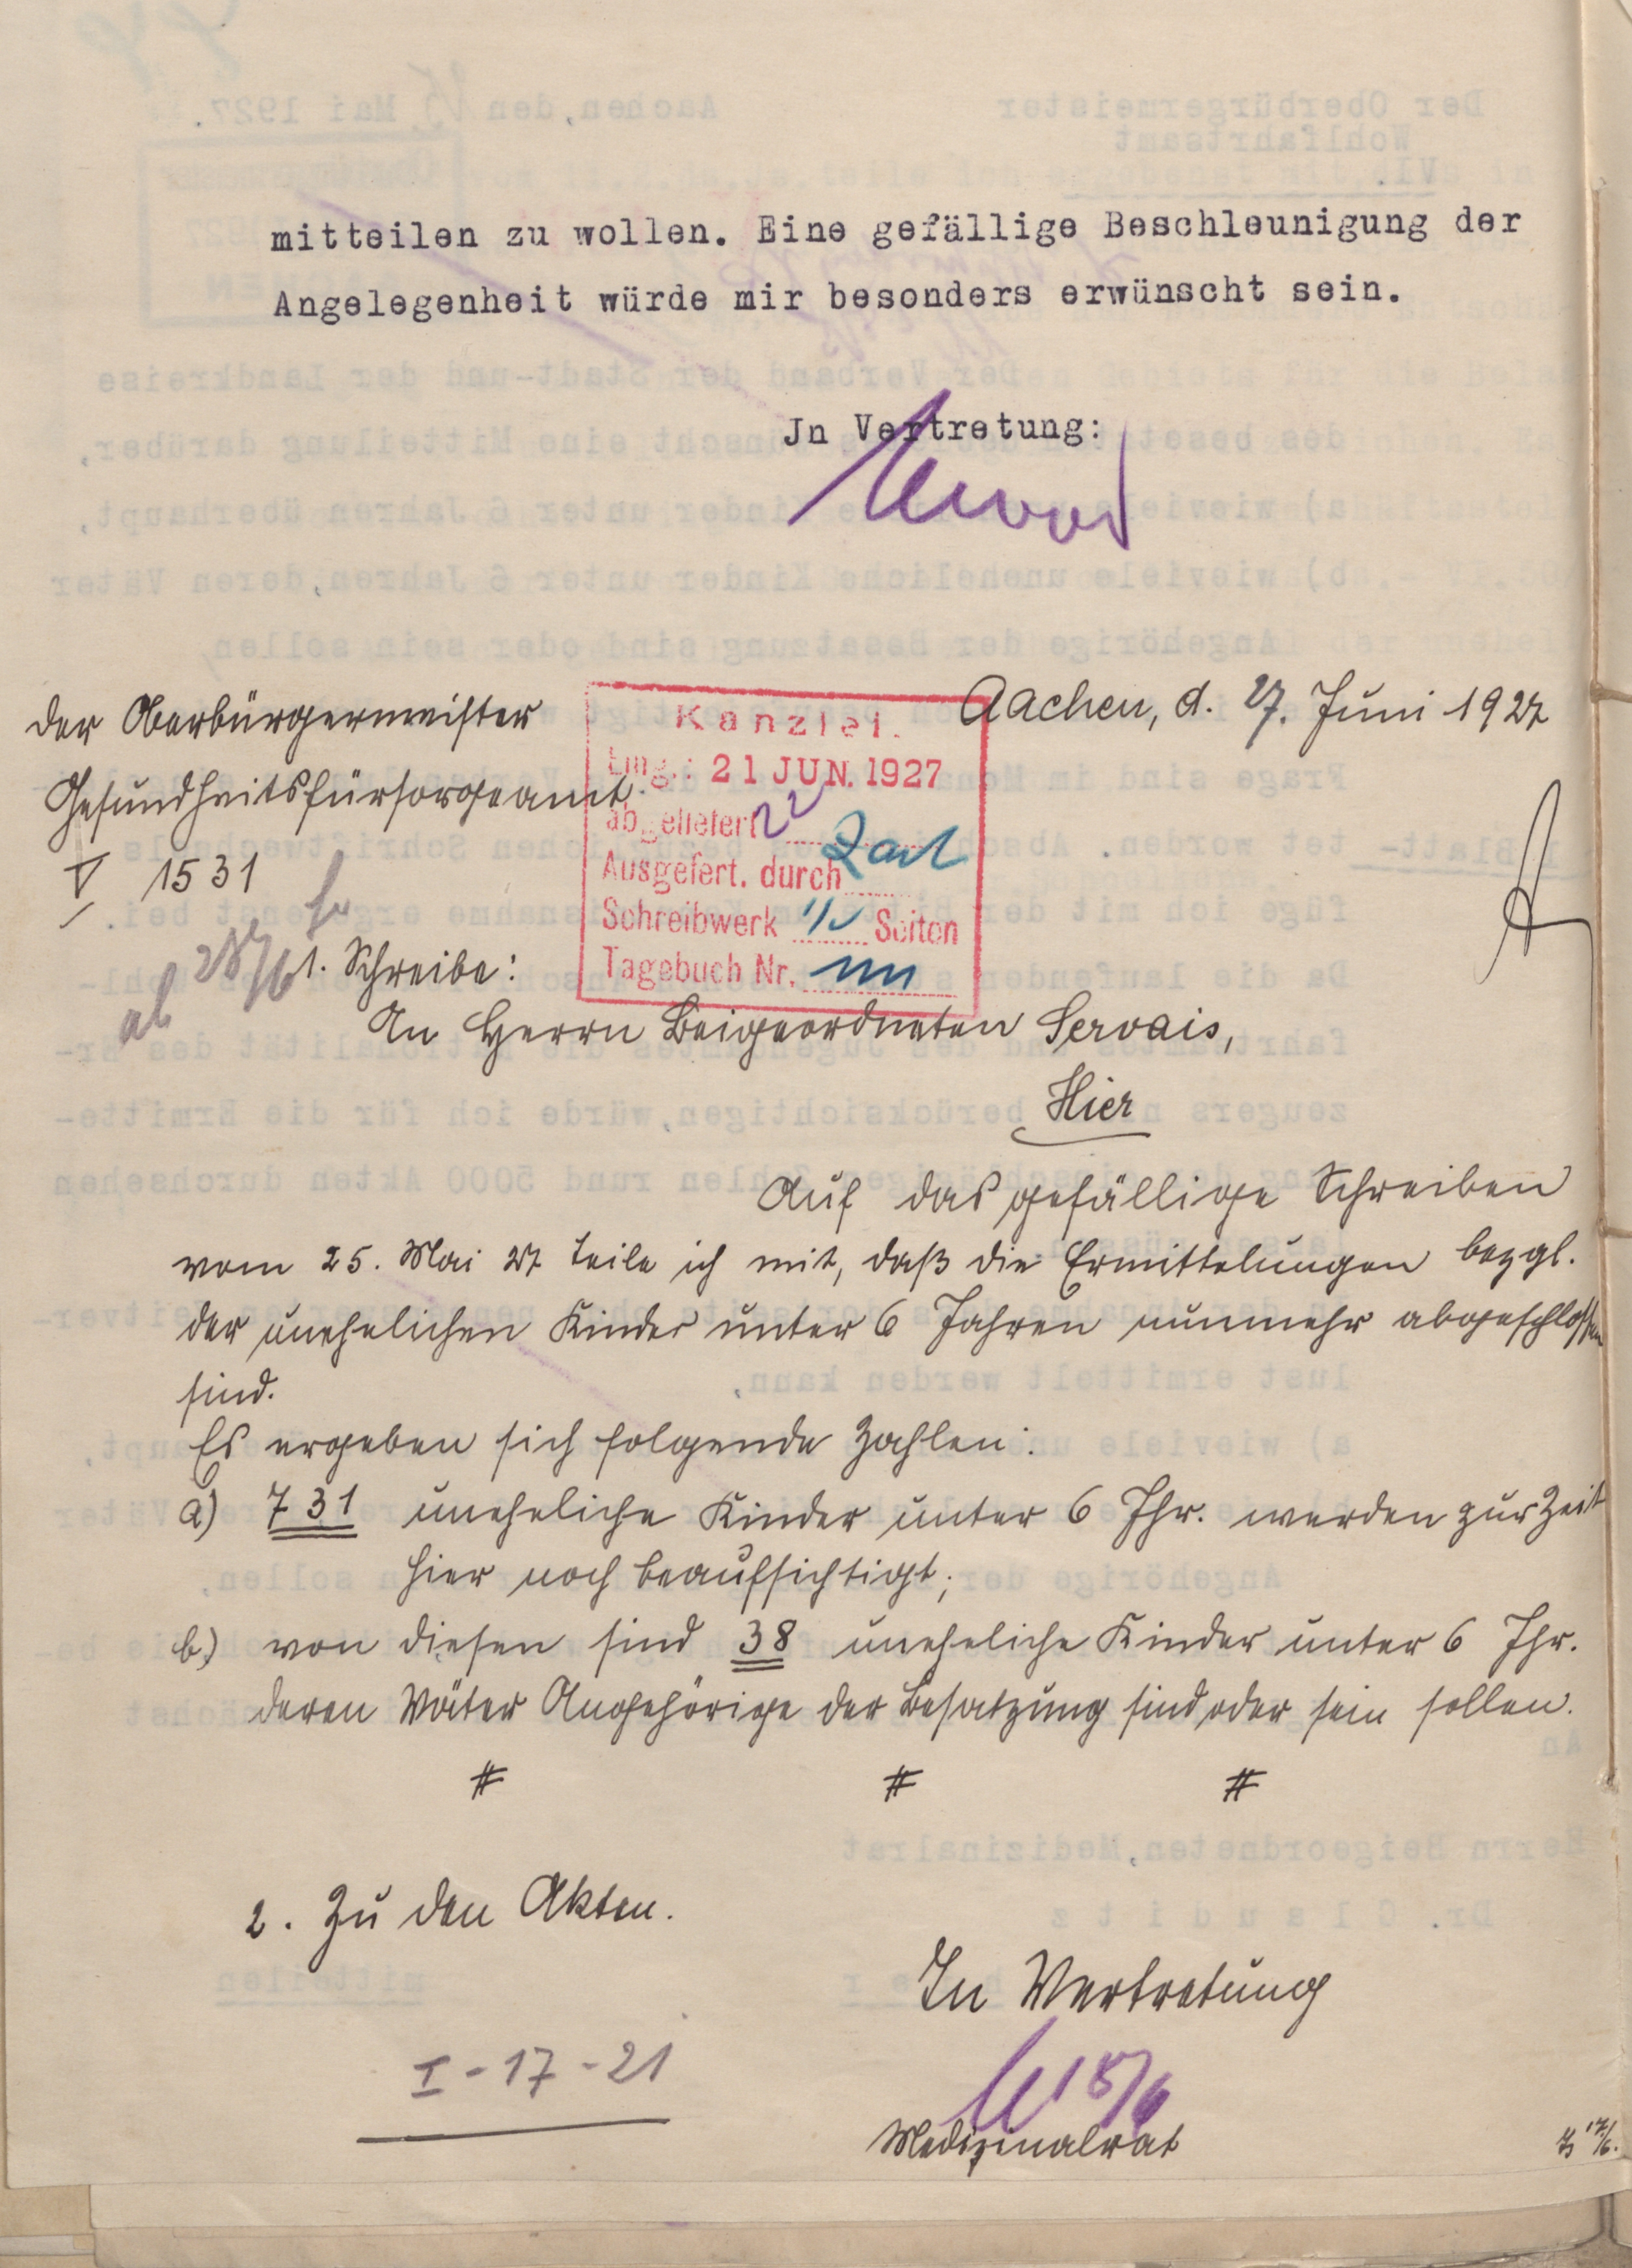 mitteilen zu wollen. Eine gefällige Beschleunigung der
Angelegenheit würde mir besonders erwünscht sein.
Jn Vertretung:
Der Oberbürgermeister
Gesundheitsfürsorgeamt.
V 1531
Aachen, d. 27. Juni 1927
Kanzlei.
Eing.: 21 JUN. 1927
abgeliefert 22
Ausgefert. durch
Schreibwerk Seiten
Tagebuch Nr.
ab 28/6
1. Schreibe:
An Herrn Beigeordneten Servais,
Hier
Auf das gefällige Schreiben
vom 25. Mai 27 teile ich mit, daß die Ermittelungen bezgl.
der unehelichen Kinder unter 6 Jahren nunmehr abgeschlossen
sind.
Es ergeben sich folgende Zahlen:
a) 731 uneheliche Kinder unter 6 Jhr. werden zur Zeit
hier noch beaufsichtigt;
b) von diesen sind 38 uneheliche Kinder unter 6 Jhr.
deren Väter Angehörige der Besatzung sind oder sein sollen.
# # #
2. Zu den Akten.
In Vertretung
18/6
Medizinalrat
I-17-21
17/6.